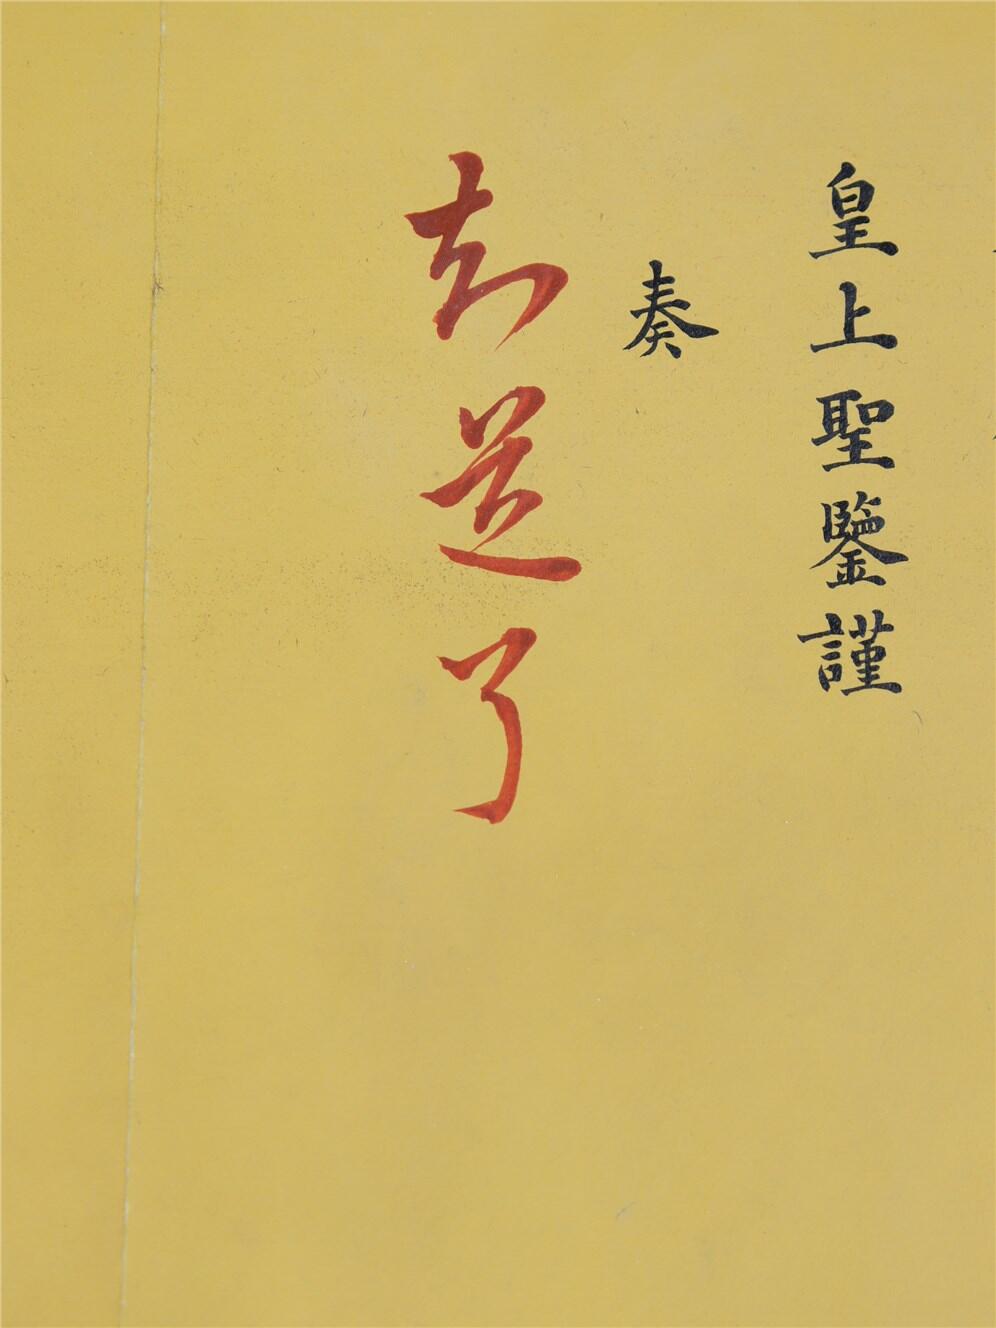 皇上聖鑒謹
奏
知道了